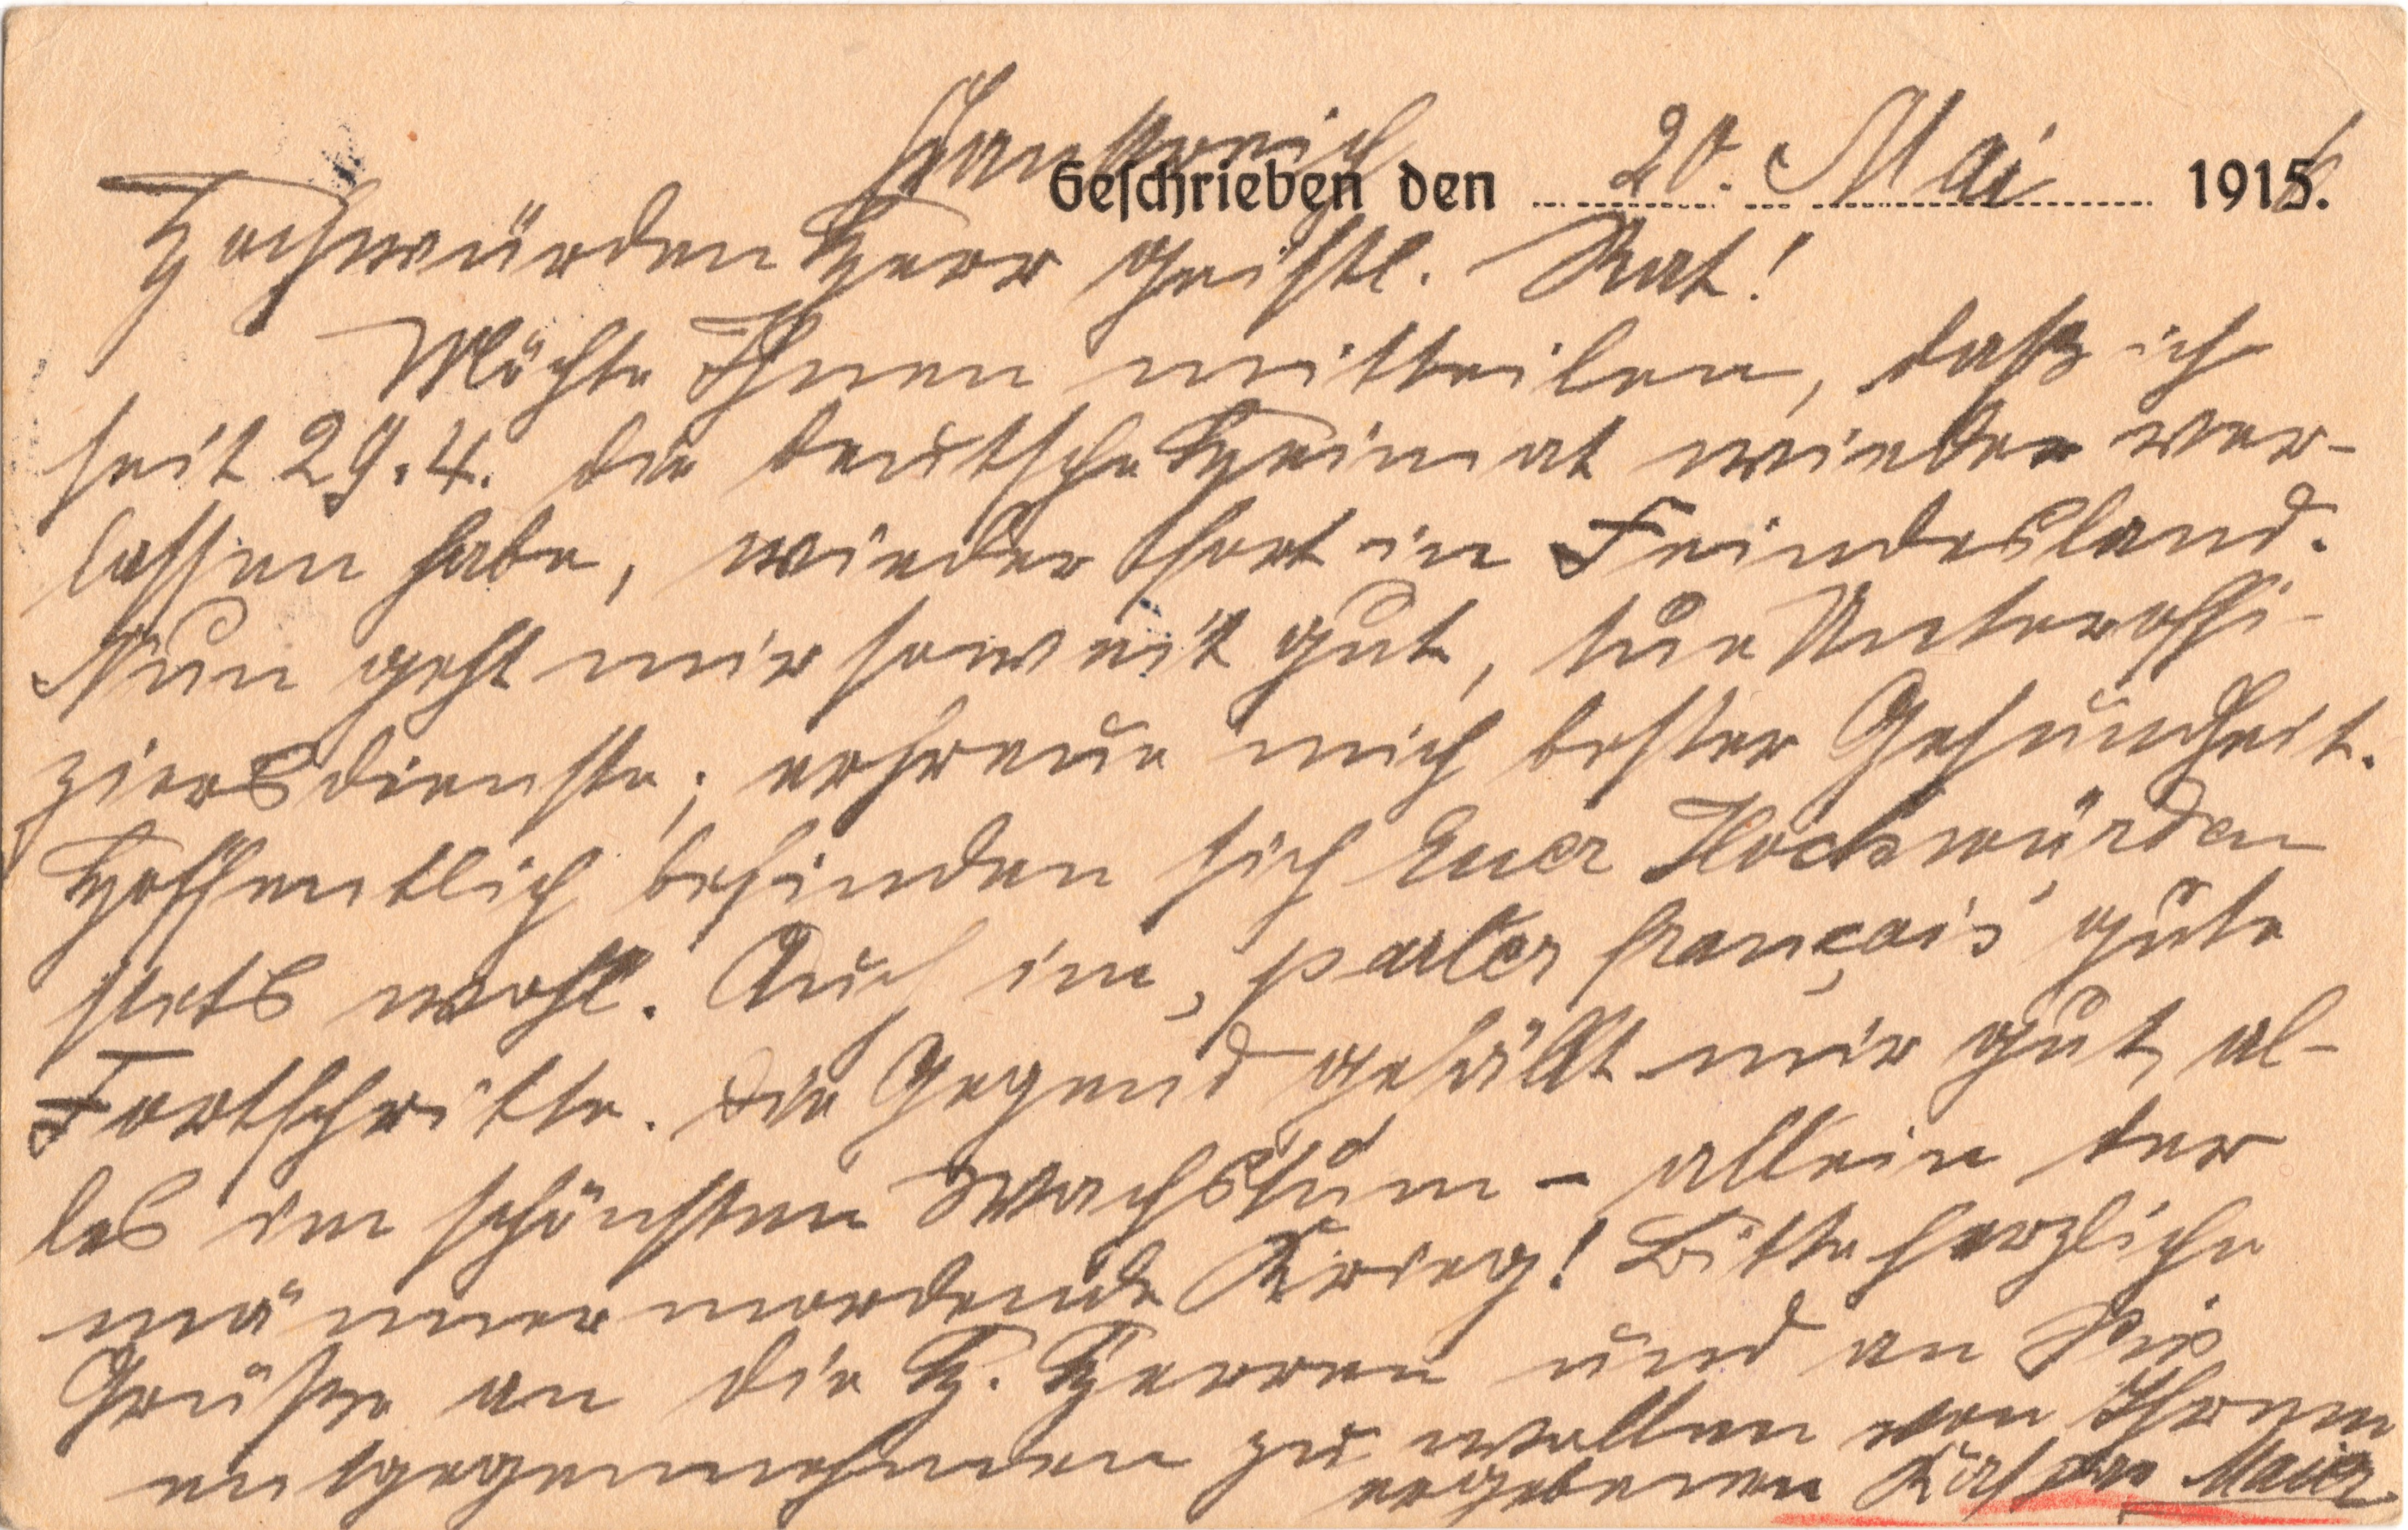 Frankreich
Geschrieben den 20. Mai 1916.
Hochwürden Herr Geistl. Rat!
Möchte Ihnen mitteilen, daß ich
seit 29.4. die deutsche Heimat wieder ver-
lassen habe, wieder dort in Feindesland.
Nun geht mir soweit gut, tue Unteroffi-
ziersdienste; erfreue mich bester Gesundheit.
Hoffentlich befinden sich Euer Hochwürden
stets wohl. Auch im „parler français" gute
Fortschritte. Die Gegend gefällt mir gut, al-
les im schönsten Wachstum – allein der
männermordende Krieg! Bitte herzliche
Grüße an die H. Herren und an Sie
entgegennehmen zu wollen von Ihrem
ergebenen Kaspar Maier